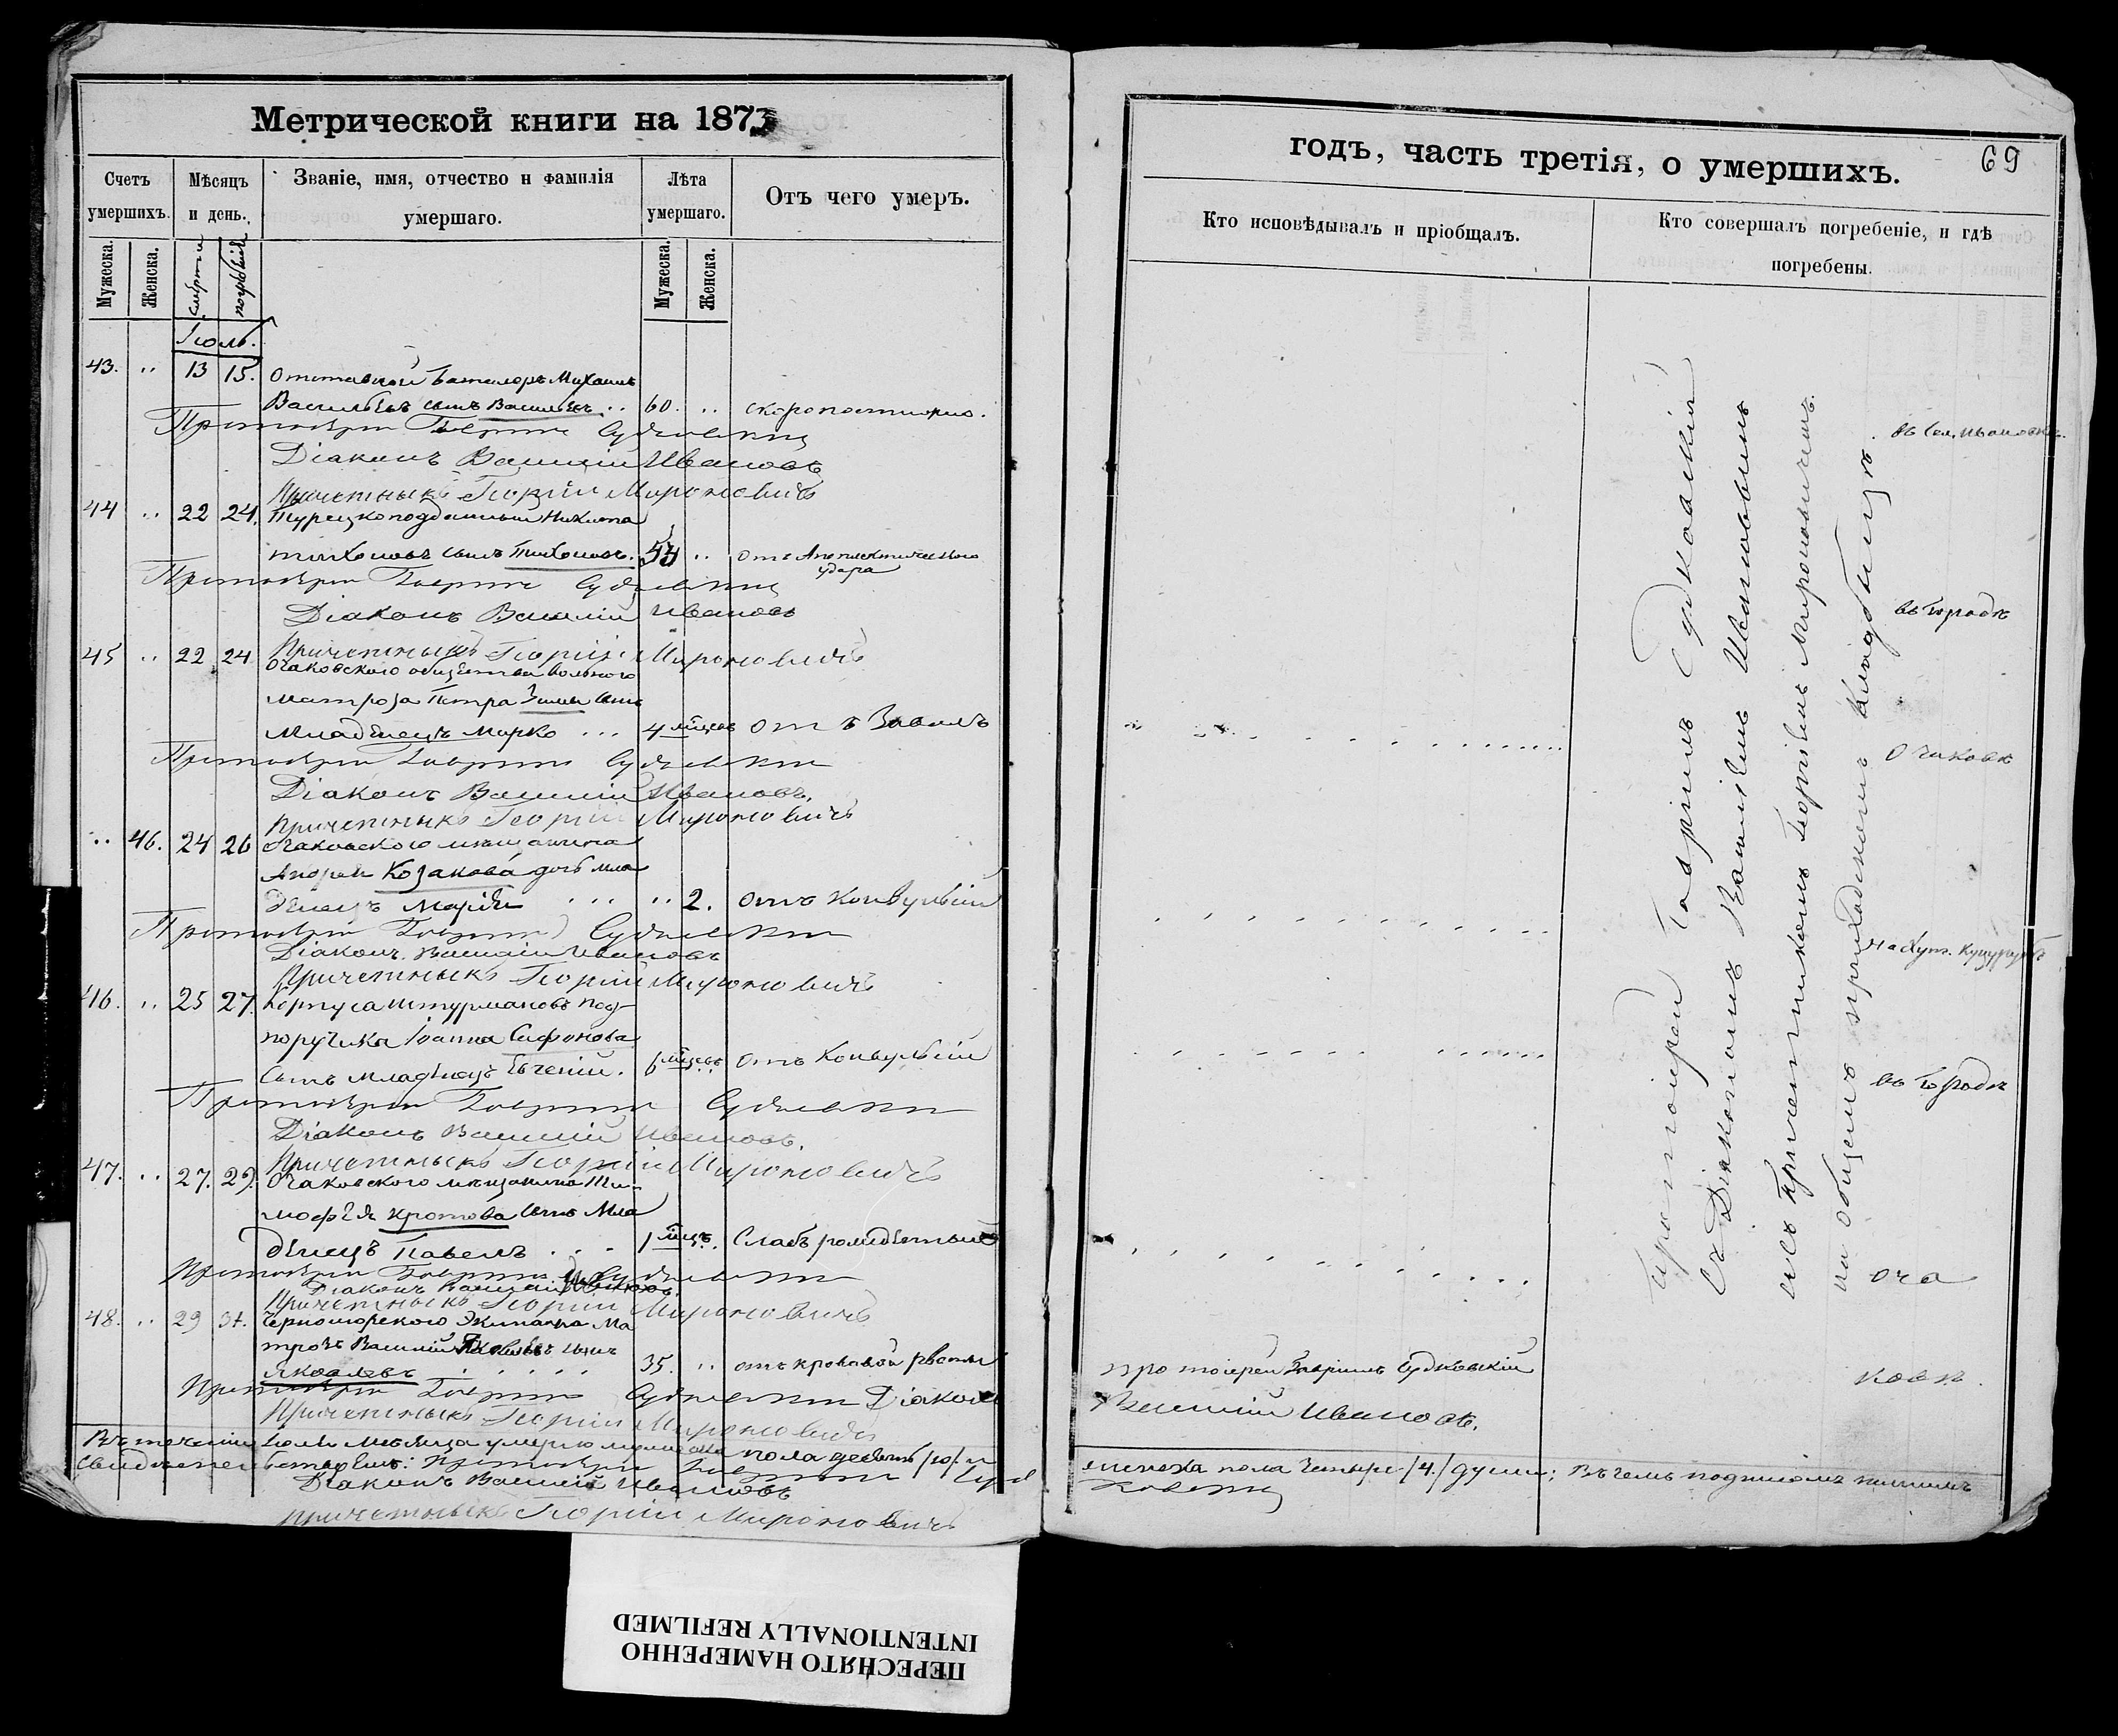 Метрической книги на 1873
Счетъ умершихъ.
Мѣсяцъ и день.
Званіе, имя, отчество и фамилія умершаго.
Лѣта умершаго.
Отъ чего умеръ.
Мужеска.
Женска.
смерти
погребенія
Мужеска.
Женска.
Іюль.
43. .. 13 15. Отставной Баталеръ Михаилъ
Васильевъ сынъ Васильевъ .. 60. .. скоропостижно.
Протоіерей Гавріилъ Судковскій
Діаконъ Василій Ивановъ
Причетникъ Георгій Мироновичъ
44 .. 22 24. Турецкоподданный Никита
Тихоновъ сынъ Тихоновъ. 54 .. отъ Апоплектическаго
удара
Протоіерей Гавріилъ Судковскій
Діаконъ Василій Ивановъ
Причетникъ Георгій Мироновичъ
45 .. 22 24 Очаковского общества вольного
матроза Петра Зимы сынъ
младенецъ Марко ... 4 мѣсцевъ отъ
Протоіерей Гавріилъ Судковскій
Діаконъ Василій Ивановъ.
Причетникъ Георгій Мироновичъ
.. 46. 24 26 Очаковского мещанина
Андрея Козакова дочь мла
денецъ Марія ... .. 2. отъ Конвульсій
Протоіерей Гавріилъ Судковскій
Діаконъ Василій Ивановъ
Причетникъ Георгій Мироновичъ
46. .. 25 27. Корпуса штурмановъ под-
поручика Іоанна Сафонова
сынъ младенецъ Евгеній. 6 мѣсцевъ .. отъ Конвульсій
Протоіерей Гавріилъ Судковскій
Діаконъ Василій Ивановъ.
Причетникъ Георгій Мироновичъ
47. .. 27. 29. Очаковского мещанина Ти-
мофея Кротова сынъ мла
денецъ Павелъ ... 1 мѣсцъ .. Слаборожденный
Протоіерей Гавріилъ Судковскій
Діаконъ Василій Ивановъ.
Причетникъ Георгій Мироновичъ
48. .. 29 31. Черноморского Экипажа Ма
трозъ Василий Яковлевъ сынъ
Яковлевъ ..... 35. .. отъ кровавой рвоты
Протоіерей Гавріилъ Судковскій Діаконъ
Причетникъ Георгій Мироновичъ
Въ теченіи Іюля Месяца умерло мужеска пола десять /10/ и
свидетельствуемъ: Протоіерей Гавріилъ Суд
Діаконъ Василій Ивановъ
Причетникъ Георгій Мироновичъ
годъ, часть третія, о умершихъ.
69
Кто исповѣдывалъ и пріобщалъ.
Кто совершалъ погребеніе, и гдѣ погребены.
Протоіерей Гавріилъ Судковскій
съ Діакономъ Василіемъ Ивановымъ
и съ Причетникомъ Георгіемъ Мироновичемъ.
на общемъ приходскомъ кладбищѣ.
въ сел. Ивановкѣ.
въ городѣ
Очаковѣ
на хут. Куцурубѣ
въ городѣ
Оча
ковѣ.
протоіерей Гавріилъ Судковскій
Василій Ивановъ.
женска пола четыре /4./ души; въ чемъ подписомъ нашимъ
ковскій
ПЕРЕСНЯТО НАМЕРЕННО
INTENTIONALLY REFILMED